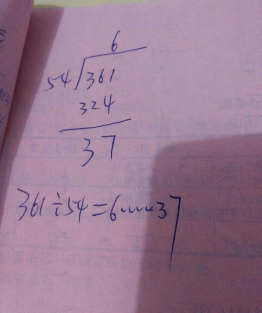 6
54 361
324
37
361÷54=6……37